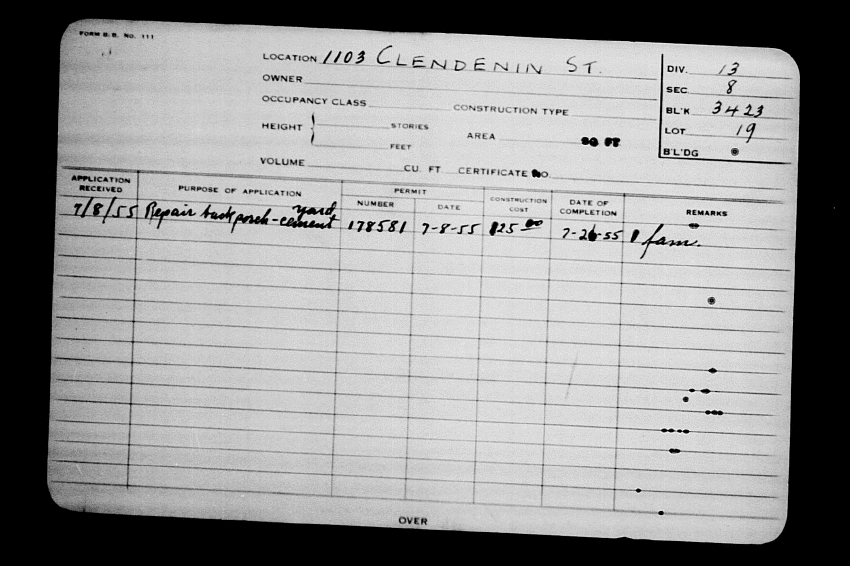 FORM B.B. No. 111
LOCATION 1103 CLENDENIN ST.
OWNER
OCCUPANCY CLASS CONSTRUCTION TYPE
HEIGHT STORIES AREA SQ FT
FEET
VOLUME CU. FT. CERTIFICATE No.
DIV. 13
SEC. 8
BL'K 3423
LOT 19
B'L'DG
APPLICATION RECEIVED PURPOSE OF APPLICATION PERMIT NUMBER DATE CONSTRUCTION COST DATE OF COMPLETION REMARKS
7/8/55 Repair back porch - cement yard 178581 7-8-55 7-26-55 1 fam.
OVER